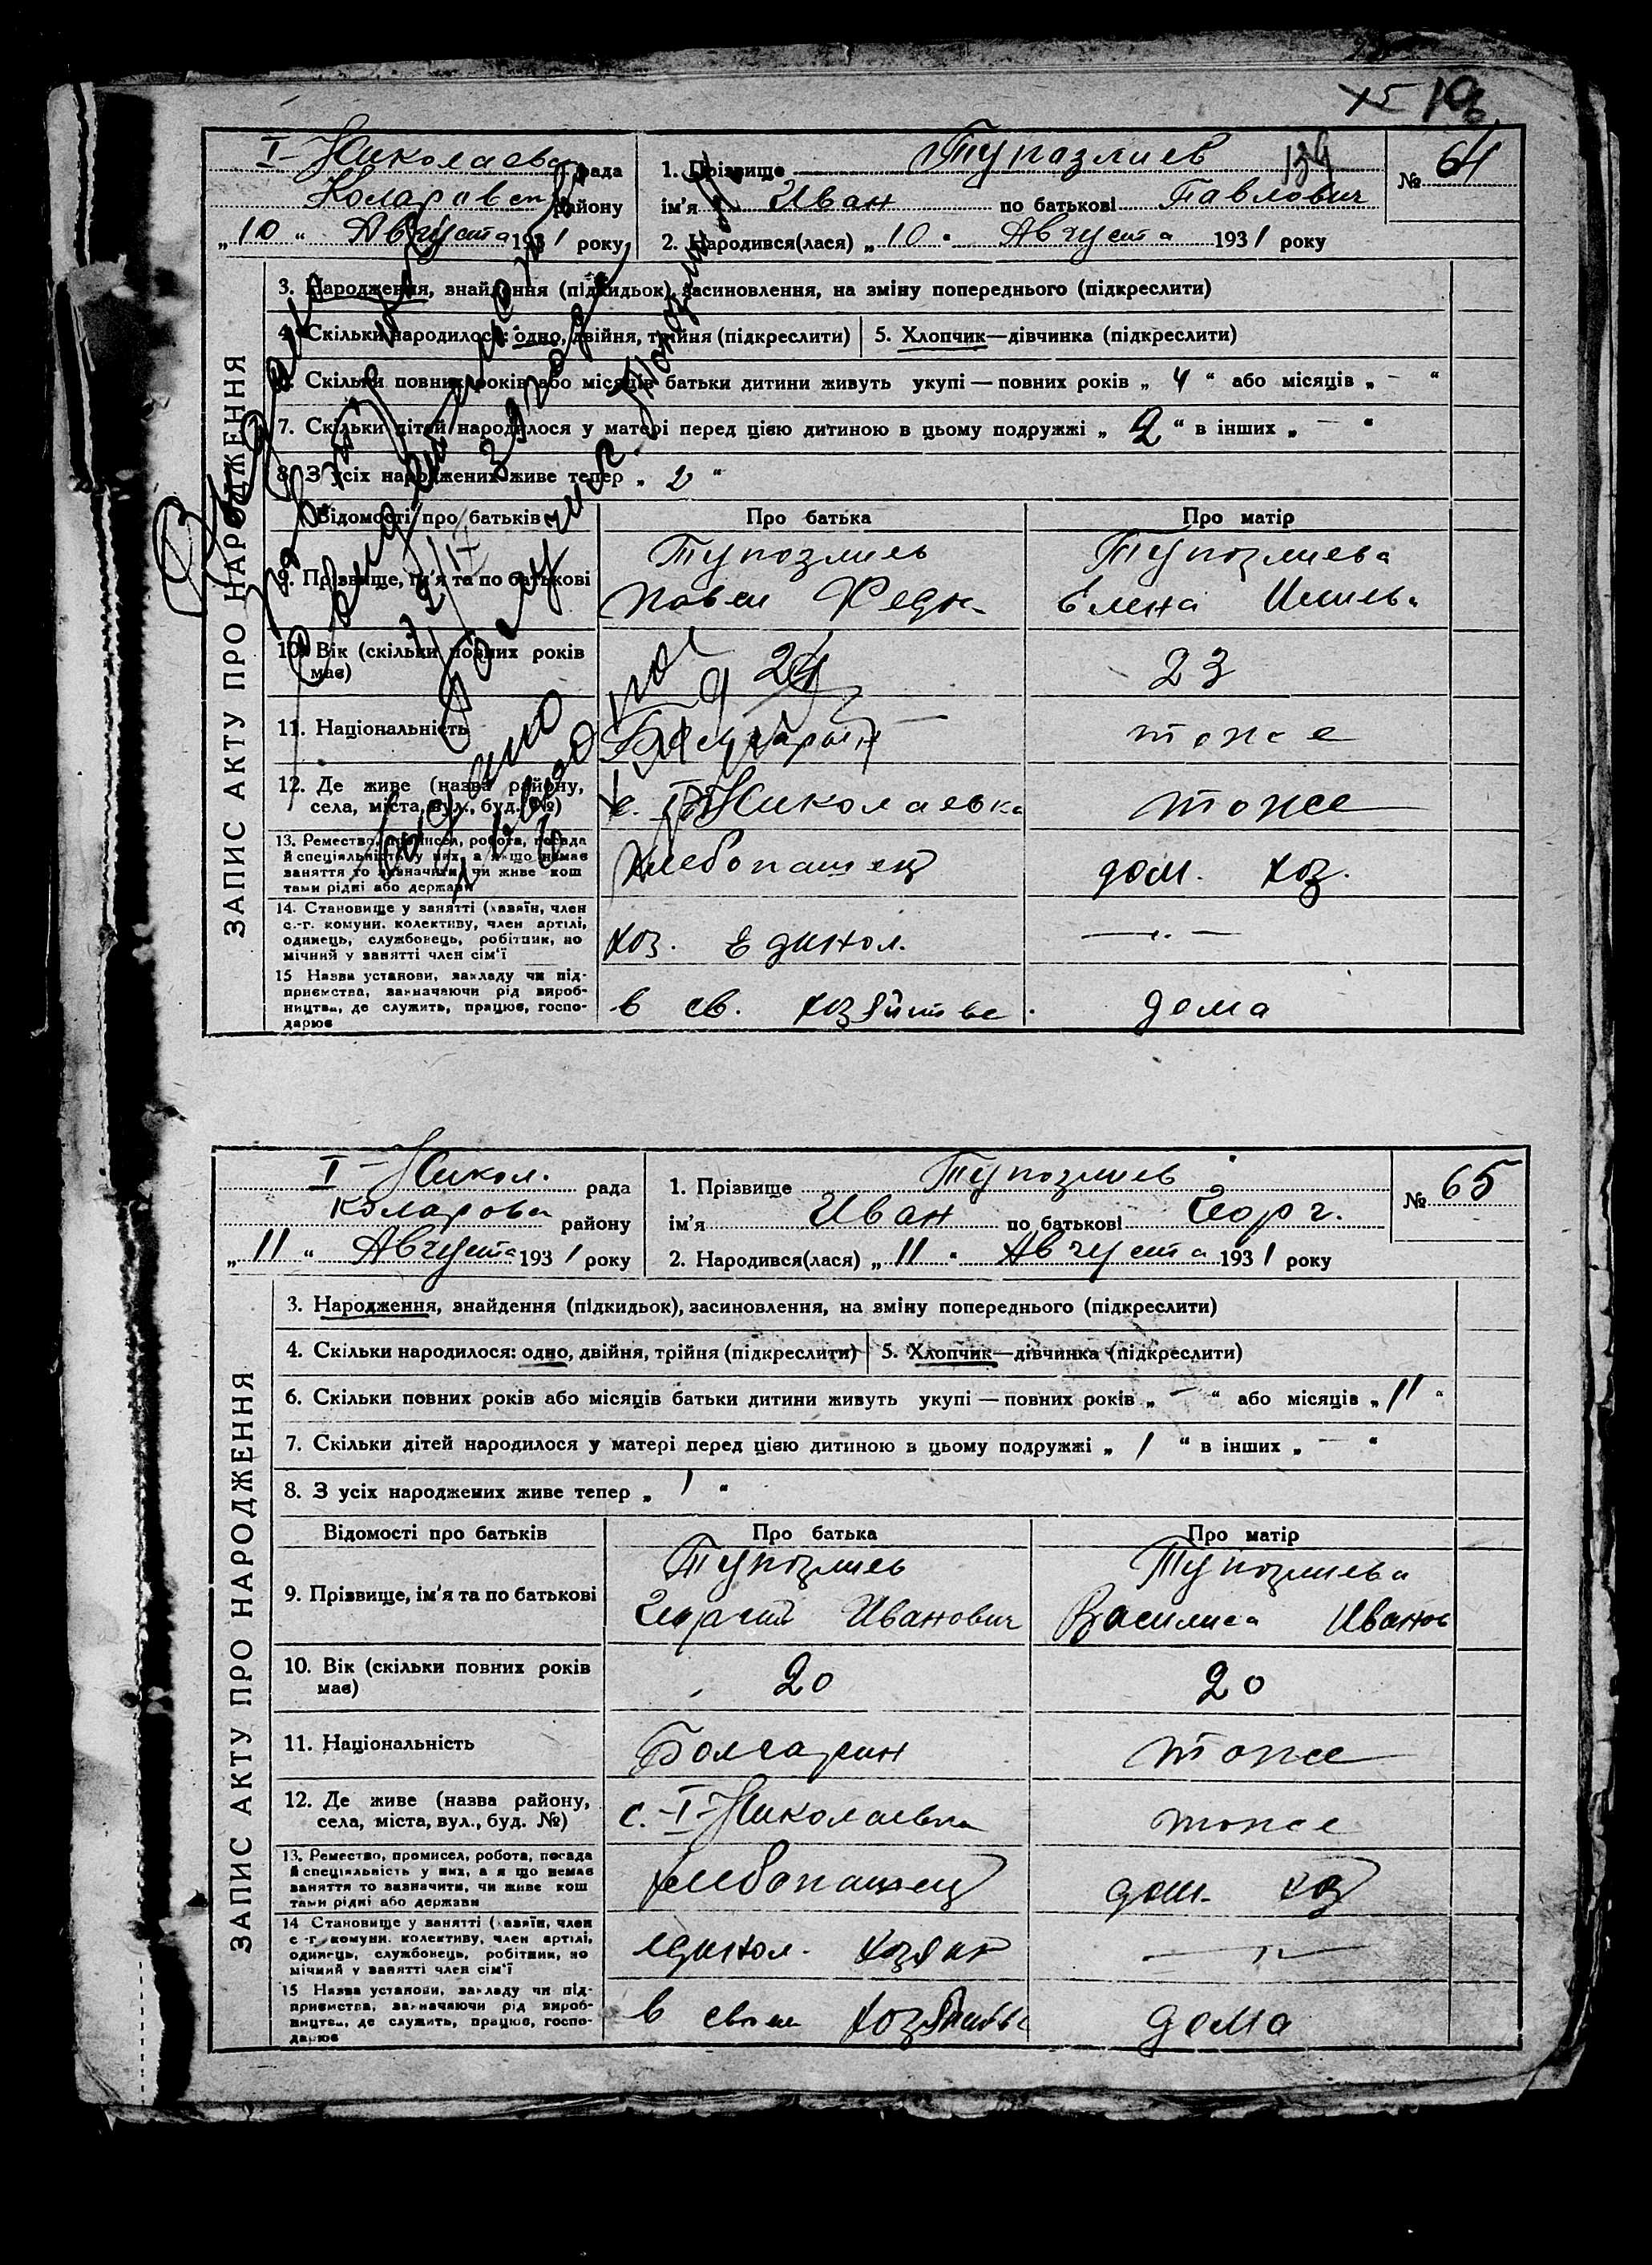 134
I-Николаевка рада
Коларовск району
„10“ Августа 1931 року
1. Прізвище Тупозлиев
№ 64
ім'я Иван по батькові Павлович
2. Народився(лася) „10“ Августа 1931 року
ЗАПИС АКТУ ПРО НАРОДЖЕННЯ
3. Народження, знайдення (підкидьок), засиновлення, на зміну попереднього (підкреслити)
4. Скільки народилося: одно, двійня, трійня (підкреслити) 5. Хлопчик—дівчинка (підкреслити)
6. Скільки повних років або місяців батьки дитини живуть укупі — повних років „ 4 “ або місяців „ — “
7. Скільки дітей народилося у матері перед цією дитиною в цьому подружжі „ 2 “ в інших „ — “
8. З усіх народжених живе тепер „ 2 “
Відомості про батьків Про батька Про матір
9. Прізвище, ім'я та по батькові
Тупозлиев
Павел Федн.
Тупозлиева
Елена
10. Вік (скільки повних років має)
24
23
11. Національність
Болгарин
тоже
12. Де живе (назва району,
села, міста, вул., буд. №)
с. I-Николаевка
тоже
13. Ремество, промисел, робота, посада
й спеціяльність у них, а якщо немає
заняття то зазначити, чи живе кош
тами рідні або держави
Хлебопашец
дом. хоз.
14. Становище у занятті (хазяїн, член
с.-г. комуни, колективу, член артілі,
одинець, службовець, робітник, по
мічний у занятті член сім'ї
хоз. Единол.
—"—
15 Назва установи, закладу чи під-
приємства, зазначаючи рід вироб-
ництва, де служить, працює, госпо-
дарює
в св. хозяйстве.
дома
I-Никол. рада
Коларовск району
„11“ Августа 1931 року
1. Прізвище Тупозлиев
№ 65
ім'я Иван по батькові Георг.
2. Народився(лася) „11“ Августа 1931 року
ЗАПИС АКТУ ПРО НАРОДЖЕННЯ
3. Народження, знайдення (підкидьок), засиновлення, на зміну попереднього (підкреслити)
4. Скільки народилося: одно, двійня, трійня (підкреслити) 5. Хлопчик—дівчинка (підкреслити)
6. Скільки повних років або місяців батьки дитини живуть укупі — повних років „ — “ або місяців „ 11 “
7. Скільки дітей народилося у матері перед цією дитиною в цьому подружжі „ 1 “ в інших „ — “
8. З усіх народжених живе тепер „ 1 “
Відомості про батьків Про батька Про матір
9. Прізвище, ім'я та по батькові
Тупозлиев
Георгий Иванович
Тупозлиева
Василиса Иванов
10. Вік (скільки повних років має)
20
20
11. Національність
Болгарин
тоже
12. Де живе (назва району,
села, міста, вул., буд. №)
с. I-Николаевка
тоже
13. Ремество, промисел, робота, посада
й спеціяльність у них, а якщо немає
заняття то зазначити, чи живе кош
тами рідні або держави
хлебопашец
дом. хоз
14 Становище у занятті (хазяїн, член
с -г. комуни. колективу, член артілі,
одинець, службовець, робітник, по
мічний у занятті член сім'ї
единол. хозяин
—"—
15 Назва установи, закладу чи під-
приємства, зазначаючи рід вироб-
ництва, де служить, працює, госпо-
дарює
в своем хозяйстве
дома